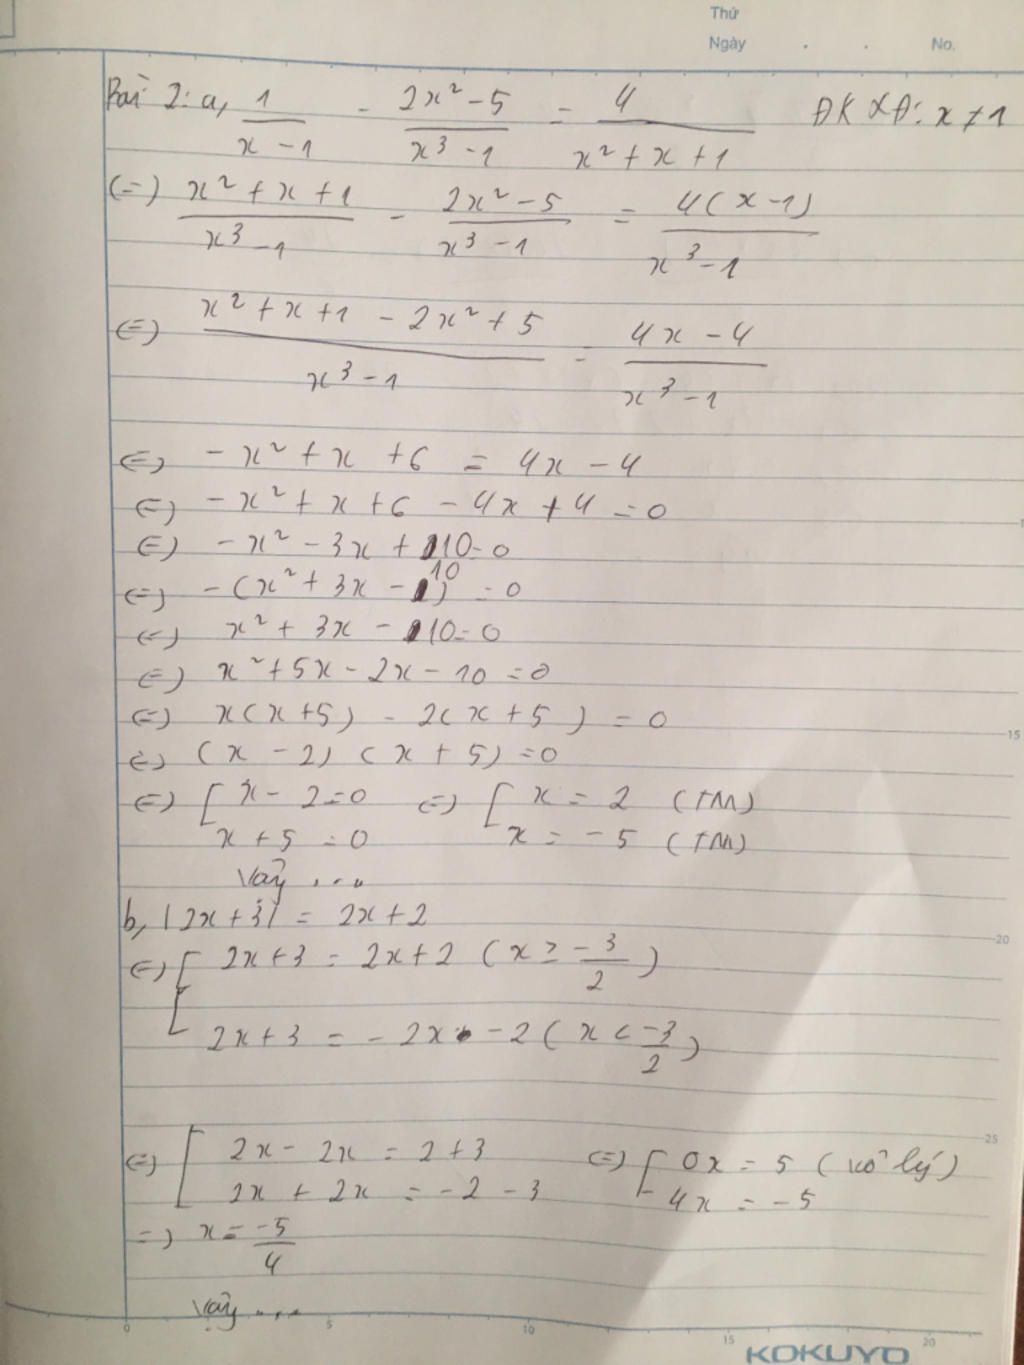 Thứ
Ngày . . No.
Bài 2: a, 1/(x - 1) - (2x² - 5)/(x³ - 1) = 4/(x² + x + 1) ĐKXĐ: x ≠ 1
(=) (x² + x + 1)/(x³ - 1) - (2x² - 5)/(x³ - 1) = 4(x - 1)/(x³ - 1)
(=) (x² + x + 1 - 2x² + 5)/(x³ - 1) = (4x - 4)/(x³ - 1)
(=) - x² + x + 6 = 4x - 4
(=) - x² + x + 6 - 4x + 4 = 0
(=) - x² - 3x + 10 = 0
(=) - (x² + 3x - 10) = 0
(=) x² + 3x - 10 = 0
(=) x² + 5x - 2x - 10 = 0
(=) x(x + 5) - 2(x + 5) = 0
(=) (x - 2) (x + 5) = 0
(=) [ x - 2 = 0 (=) [ x = 2 (TM)
x + 5 = 0 x = - 5 (TM)
Vậy ...
b, |2x + 3| = 2x + 2
(=) [ 2x + 3 = 2x + 2 (x ≥ -3/2)
[ 2x + 3 = - 2x - 2 (x < -3/2)
(=) [ 2x - 2x = 2 + 3 (=) [ 0x = 5 (vô lý)
2x + 2x = - 2 - 3 4x = - 5
=) x = -5/4
Vậy ...
15
20
25
0 5 10 15 20
KOKUYO